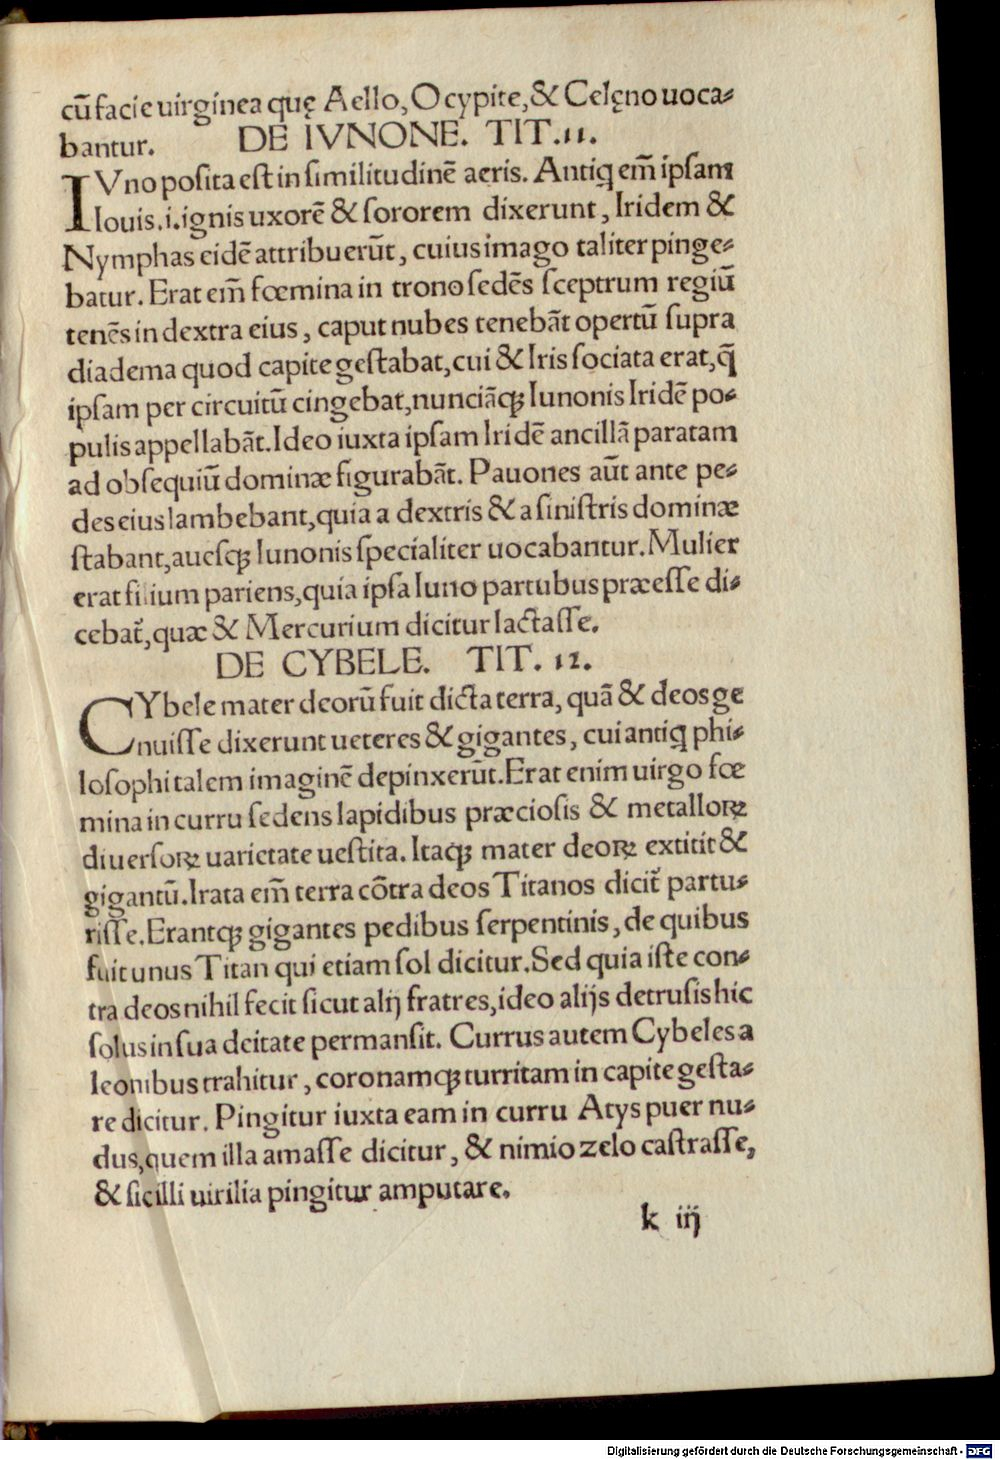 cū facie uirginea quę Aello, Ocypite, & Celęno uoca⸗
bantur. DE IVNONE. TIT. 11.
IVno posita est in similitudinē aeris. Antiq em̄ ipsam
Iouis .i. ignis uxorē & sororem dixerunt, Iridem &
Nymphas eidē attribuerūt, cuius imago taliter pinge⸗
batur. Erat em̄ fœmina in trono sedēs sceptrum regiū
tenēs in dextra eius, caput nubes tenebāt opertū supra
diadema quod capite gestabat, cui & Iris sociata erat, q̄
ipsam per circuitū cingebat, nunciāqꝫ Iunonis Iridē po⸗
pulis appellabāt. Ideo iuxta ipsam Iridē ancillā paratam
ad obsequiū dominæ figurabāt. Pauones aūt ante pe⸗
des eius lambebant, quia a dextris & a sinistris dominæ
stabant, auesqꝫ Iunonis specialiter uocabantur. Mulier
erat filium pariens, quia ipsa Iuno partubus præesse di⸗
cebat̄, quæ & Mercurium dicitur lactasse.
DE CYBELE. TIT. 12.
CYbele mater deorū fuit dicta terra, quā & deos ge
nuisse dixerunt ueteres & gigantes, cui antiq phi⸗
losophi talem imaginē depinxerūt. Erat enim uirgo fœ
mina in curru sedens lapidibus præciosis & metalloꝝ
diuersoꝝ uarietate uestita. Itaqꝫ mater deoꝝ extitit &
gigantū. Irata em̄ terra cōtra deos Titanos dicit̄ partu⸗
risse. Erantqꝫ gigantes pedibus serpentinis, de quibus
fuit unus Titan qui etiam sol dicitur. Sed quia iste con⸗
tra deos nihil fecit sicut alij fratres, ideo alijs detrusis hic
solus in sua deitate permansit. Currus autem Cybeles a
leonibus trahitur, coronamqꝫ turritam in capite gesta⸗
re dicitur. Pingitur iuxta eam in curru Atys puer nu⸗
dus, quem illa amasse dicitur, & nimio zelo castrasse,
& sic illi uirilia pingitur amputare.
k iij
Digitalisierung gefördert durch die Deutsche Forschungsgemeinschaft - DFG